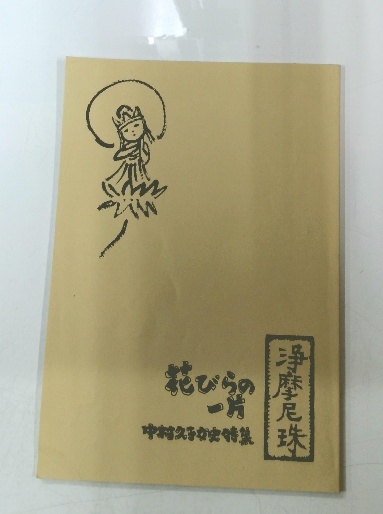 浄摩尼珠
花びらの
一片
中村久子女史特集